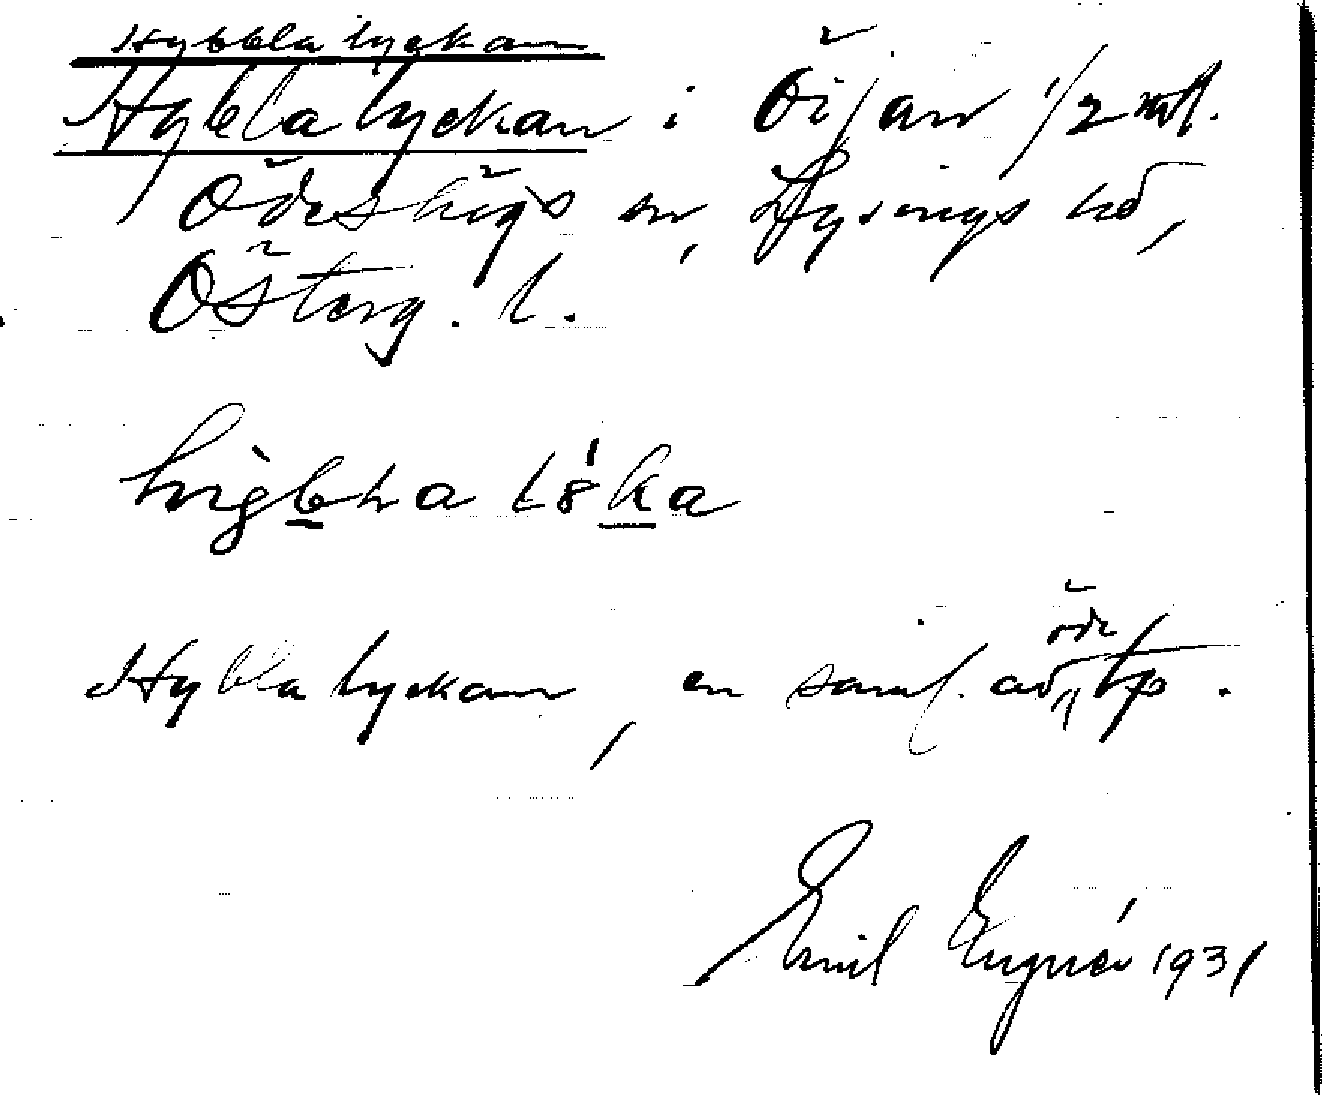 Hybbla lyckan
Hybla lyckan i Öijan 1/2 mtl.
Ödeshögs sn, Lysings hd,
Österg. l.
Hybla lyckan, en saml. av öde tp.
Emil Engnér 1931